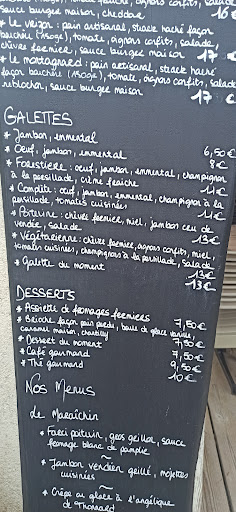 sauce burger maison, cheddar 16€
* Le veggi : pain artisanal, steack haché façon
bouchère (180g), tomate, oignons confits, salade,
chèvre fermier, sauce burger maison 17€
* Le montagnard : pain artisanal, steack haché
façon bouchère (180g), tomate, oignons confits, salade
reblochon, sauce burger maison 17€
GALETTES
* Jambon, emmental 6,50€
* Oeuf, jambon, emmental 8€
* Forestière : oeuf, jambon, emmental, champignon
à la persillade, crème fraîche 11€
* Complète : oeuf, jambon, emmental, champignon à la
persillade, tomates cuisinées 11€
* Porteuine : chèvre fermier, miel, jambon cru de
vendée, salade 13€
* Végétarienne : chèvre fermier, oignons confits, miel,
tomates cuisinées, champignons à la persillade, salade 13€
* Galette du moment 13€
DESSERTS
* Assiette de fromages fermiers 7,50€
* Brioche façon pain perdu, boule de glace vanille,
caramel maison, chantilly 7,50€
* Dessert du moment 7,50€
* Café gourmand 9,50€
* Thé gourmand 10€
Nos Menus
Le Maraîchin
* Farci poitevin, gros grillot, sauce
fromage blanc de pamplie
~
* Jambon vendéen grillé, mojettes
cuisinées
~
* Crêpe ou glace à l'angélique
de Thonnard